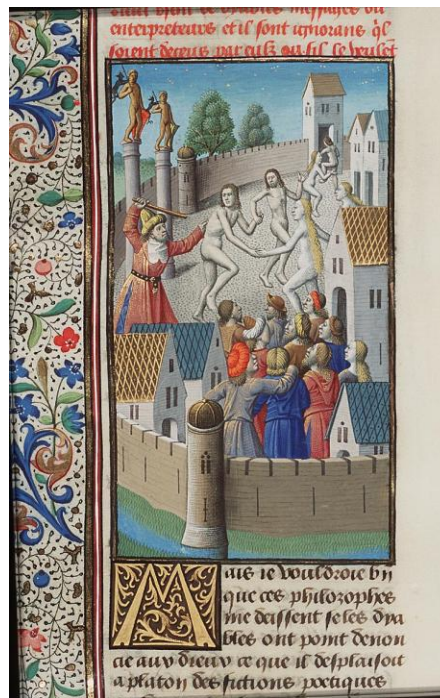 messages ou
enterpreteurs et il sont ignorans q̃l
soient deceus par eulx ou sil le veulet
Mais ie vouldroie bn
que ces philozophes
me deissent se les dya
bles ont point denon
cie aux dieux ce que il desplaisoit
a platon des fictions poetiques